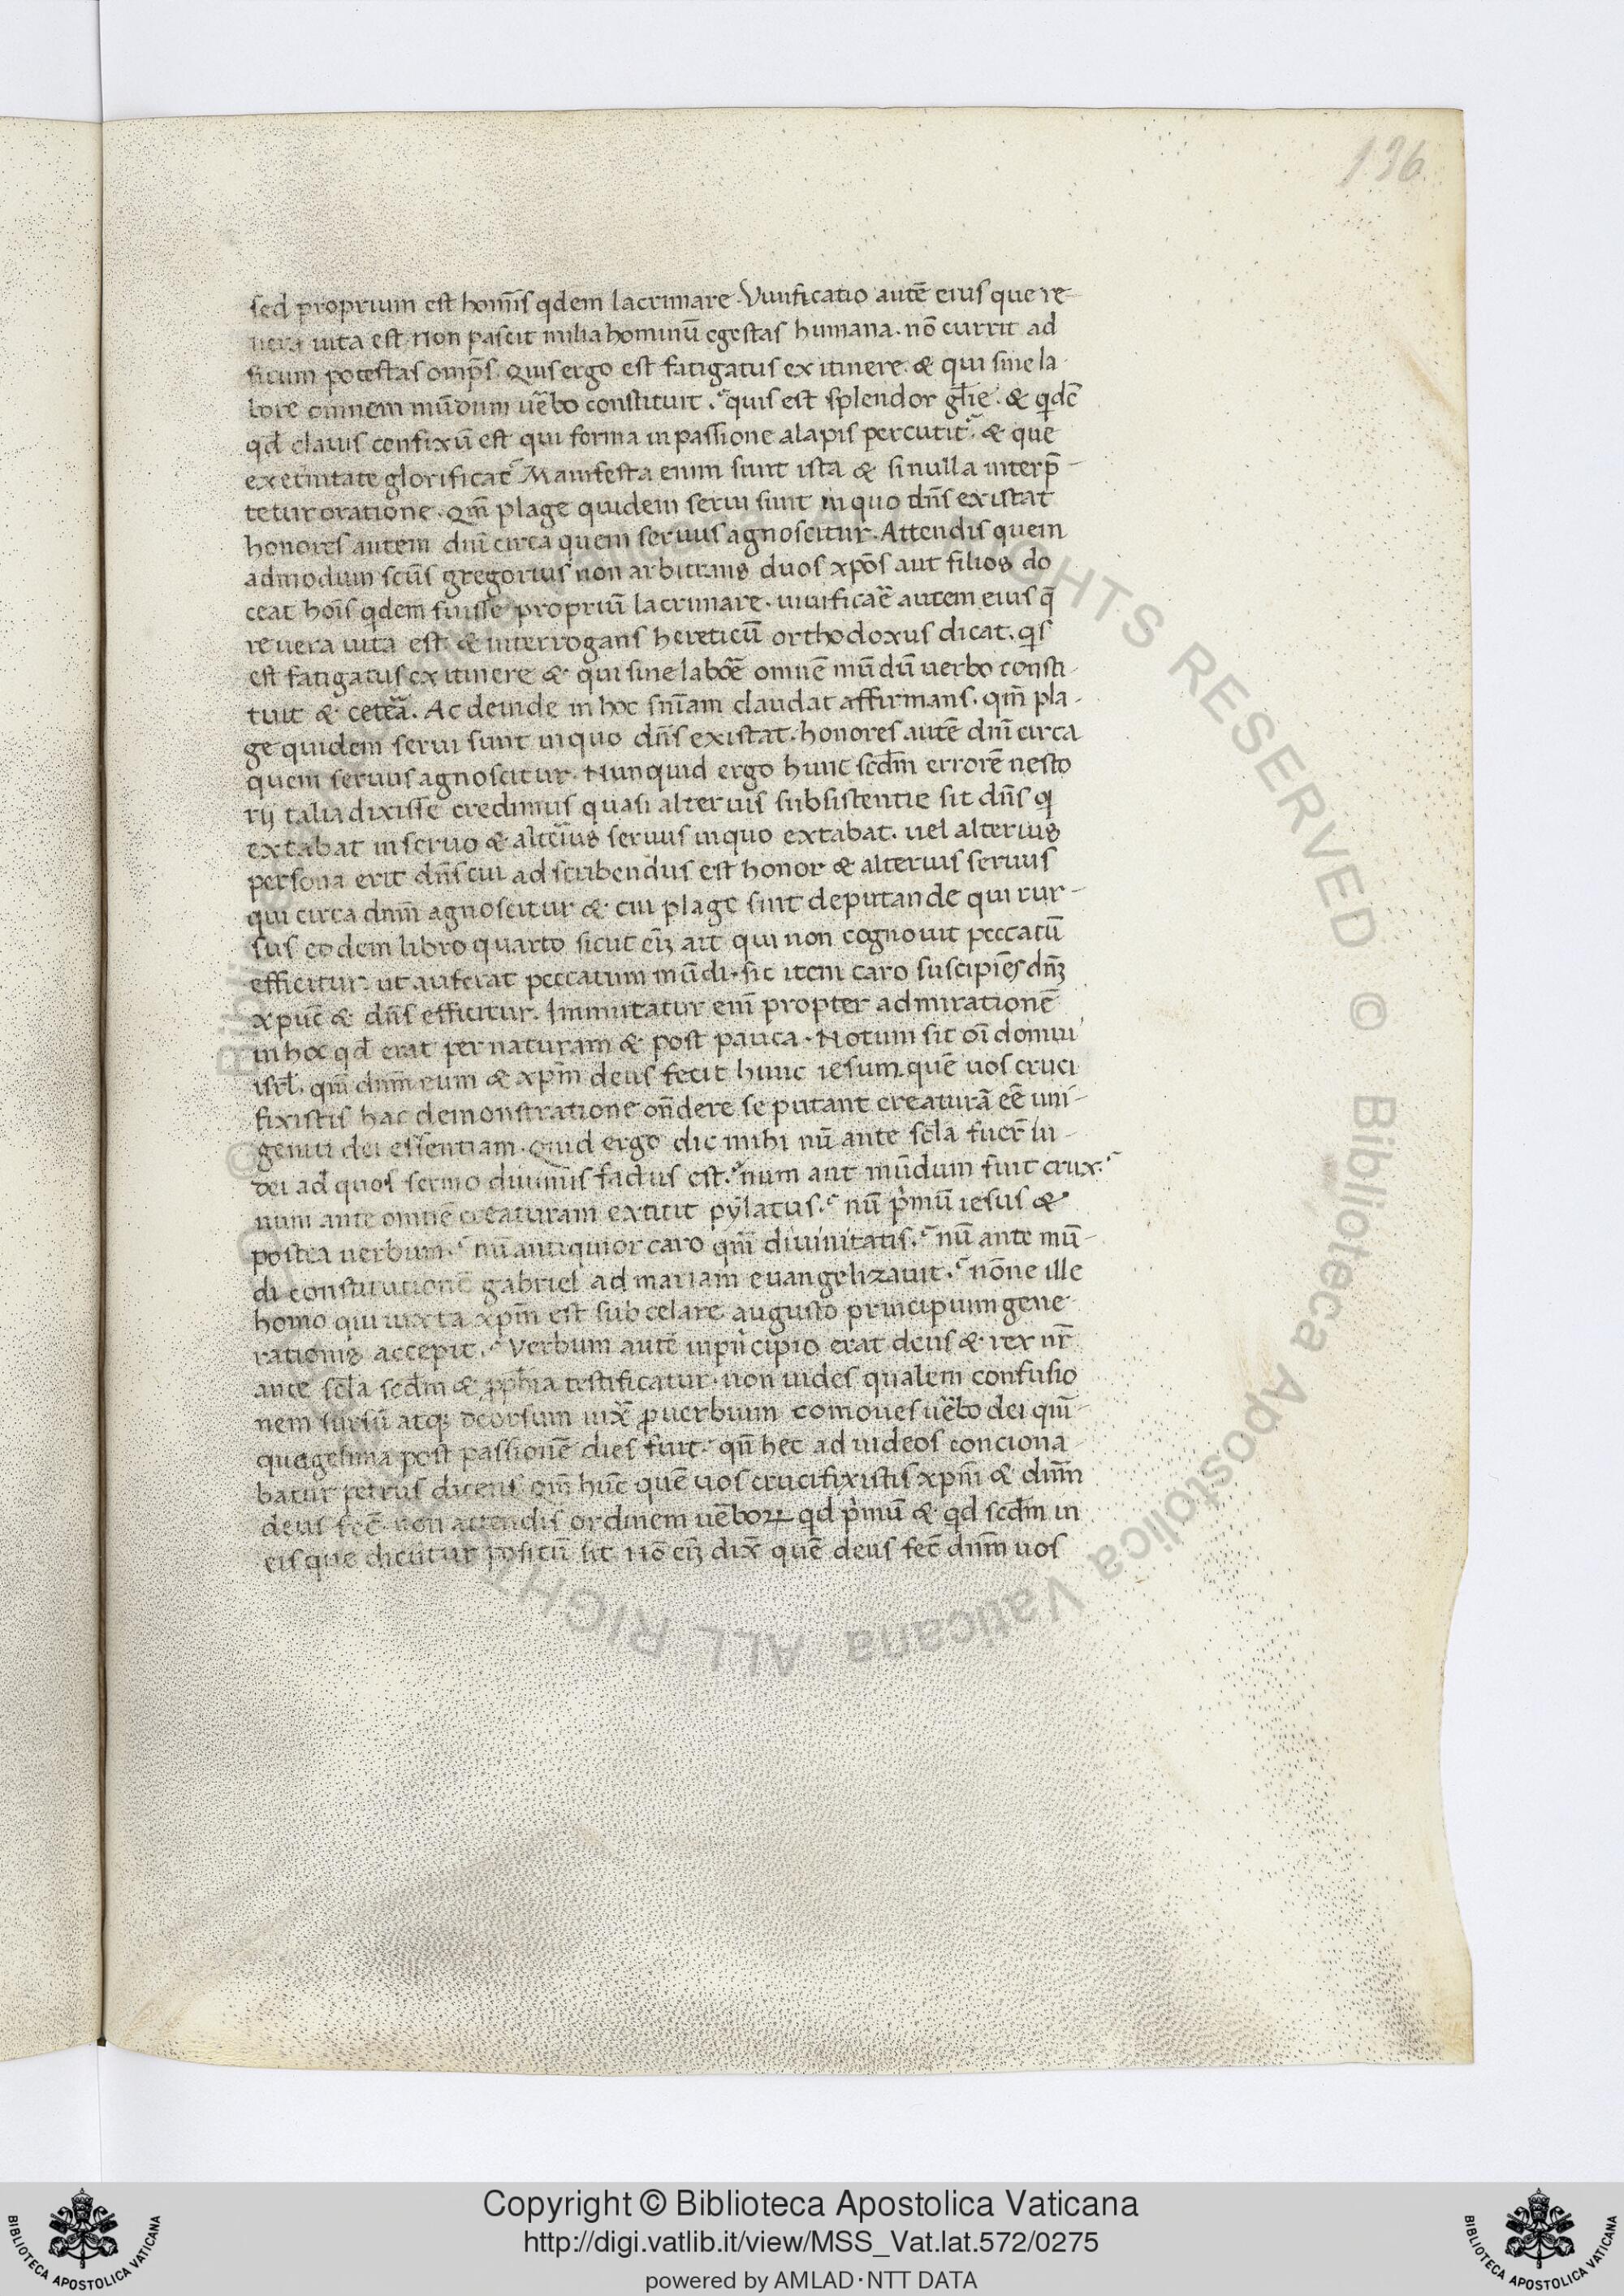 136
sed proprium est homīs qdem lacrimare. Viuificatio autē eius que re-
uera uita est. non pascit milia hominū egestas humana. nō currit ad
ficum potestas omp̄s. Quis ergo est fatigatus ex itinere. & qui sine la-
bore omnem mūdum uēbo constituit. quis est splendor gl̄ie. & qdē
qd clauis confixū est qui forma in passione alapis percutit̄. & que
ex et̄nitate glorificat̄ Manifesta enim sunt ista & si nulla interp̄-
tetur oratione. Qm̄ plage quidem serui sunt in quo dn̄s existat
honores autem dnī circa quem seruus agnoscitur. Attendis quem
admodum scūs gregorius non arbitrans duos xp̄os aut filios do
ceat hoīs qdem fuisse propriū lacrimare. uiuificar̄e autem eius q̄
re uera uita est. & interrogans hereticū orthodoxus dicat. qis
est fatigatus ex itinere & qui sine labor̄e omnē mūdū uerbo consti-
tuit & ceter̄a. Ac deinde in hoc sn̄iam claudat affirmans. qm̄ pla-
ge quidem serui sunt in quo dn̄s existat. honores autē dnī circa
quem seruus agnoscitur. Nunquid ergo hunc scd̄m errorē nesto
rij talia dixisse credimus quasi alterius subsistentie sit dn̄s q
extabat in seruo & alter̄ius seruus in quo extabat. uel alterius
persona erit dn̄s cui adscribendus est honor & alterius seruus
qui circa dnm̄ agnoscitur & cui plage sint deputande qui rur-
sus eodem libro quarto sicut eīʒ ait qui non cognouit peccatū
efficitur. ut auferat peccatum mūdi. sic item caro suscipiēs dnʒ̄
xpūc & dn̄s efficitur. Immutatur enī propter admirationē
in hoc qd erat per naturam & post pauca. Notum sit oī domui
isrl̄. qm̄ dnm̄ eum & xpm̄ deus fecit hunc iesum quē uos cruci
fixistis hac demonstratione on̄dere se putant creaturā eē uni-
geniti dei essentiam. Quid ergo dic mihi nū ante scl̄a fuer̄ iu-
dei ad quos sermo diuinus factus est. num ant mūdum fuit crux.
num ante omnē creaturam extitit pylatus. nū p̄mū iesus &
postea uerbum. nū antiquior caro qm̄ diuinitatis. nū ante mū-
di constitutionē gabriel ad mariam euangelizauit. nōne ille
homo qui iuxta xpm̄ est sub cesare augusto principium gene-
rationis accepit. Verbum autē in pn̄cipio erat deus & rex nr̄
ante scl̄a scd̄m & pph̄ia testificatur. non uides qualem confusio
nem sursū atq; deorsum iux̄ puerbium comoues uēbo dei qm̄
quagesima post passionē dies fuit. qn̄ hec ad iudeos conciona
batur petrus dicens. Qm̄ hūc quē uos crucifixistis xpm̄ & dnm̄
deus fec̄. non attendis ordinem uēboꝝ qd p̄mū & qd scd̄m in
eis que dicūtur positū sit. Nō eīʒ dix̄ quē deus fec̄ dnm̄ uos
© Biblioteca Apostolica Vaticana ALL RIGHTS RESERVED
Copyright © Biblioteca Apostolica Vaticana
http://digi.vatlib.it/view/MSS_Vat.lat.572/0275
powered by AMLAD·NTT DATA
BIBLIOTECA APOSTOLICA VATICANA
BIBLIOTECA APOSTOLICA VATICANA